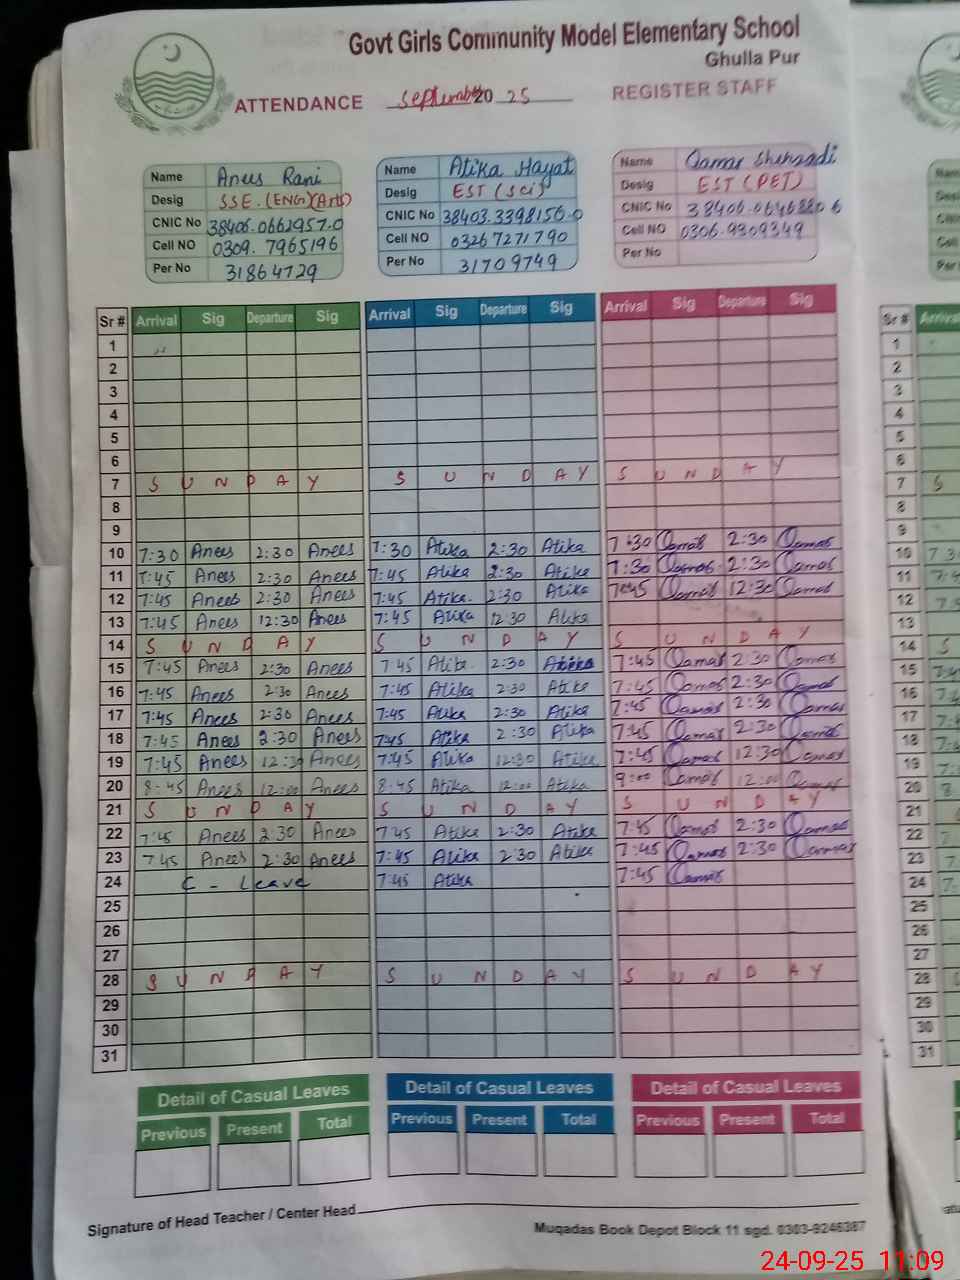 Govt Girls Community Model Elementary School
Ghulla Pur
ATTENDANCE September 20 25 REGISTER STAFF
Name Anees Rani
Desig SSE.(ENG)(Arts)
CNIC No 38406.0662957.0
Cell NO 0309.7965196
Per No 31864729
Name Atika Hayat
Desig EST (Sci)
CNIC No 38403.3398156.0
Cell NO 0326 7271790
Per No 31709749
Name Qamar Shehzadi
Desig EST (PET)
CNIC No 38406.0646880 6
Cell NO 0306.9309349
Per No
Sr # Arrival Sig Departure Sig Arrival Sig Departure Sig Arrival Sig Departure Sig
1
2
3
4
5
6
7 S U N D A Y S U N D A Y S U N D A Y
8
9
10 7:30 Anees 2:30 Anees 7:30 Atika 2:30 Atika 7:30 Qamar 2:30 Qamar
11 7:45 Anees 2:30 Anees 7:45 Atika 2:30 Atika 7:30 Qamar 2:30 Qamar
12 7:45 Anees 2:30 Anees 7:45 Atika 2:30 Atika 7:45 Qamar 12:30 Qamar
13 7:45 Anees 12:30 Anees 7:45 Atika 12:30 Atika
14 S U N D A Y S U N D A Y S U N D A Y
15 7:45 Anees 2:30 Anees 7 45 Atika 2:30 Atika 7:45 Qamar 2:30 Qamar
16 7:45 Anees 2:30 Anees 7:45 Atika 2:30 Atika 7:45 Qamar 2:30 Qamar
17 7:45 Anees 2:30 Anees 7:45 Atika 2:30 Atika 7:45 Qamar 2:30 Qamar
18 7:45 Anees 2:30 Anees 7:45 Atika 2:30 Atika 7:45 Qamar 2:30 Qamar
19 7:45 Anees 12:30 Anees 7:45 Atika 12:30 Atika 7:45 Qamar 12:30 Qamar
20 8:45 Anees 12:00 Anees 8:45 Atika 12:00 Atika 9:00 Qamar 12:00 Qamar
21 S U N D A Y S U N D A Y S U N D A Y
22 7:45 Anees 2:30 Anees 7:45 Atika 2:30 Atika 7:45 Qamar 2:30 Qamar
23 7 45 Anees 2:30 Anees 7:45 Atika 2:30 Atika 7:45 Qamar 2:30 Qamar
24 C - Leave 7:45 Atika 7:45 Qamar
25
26
27
28 S U N D A Y S U N D A Y S U N D A Y
29
30
31
Detail of Casual Leaves Detail of Casual Leaves Detail of Casual Leaves
Previous Present Total Previous Present Total Previous Present Total
Signature of Head Teacher / Center Head
Muqadas Book Depot Block 11 sgd. 0303-9246387
24-09-25 11:09